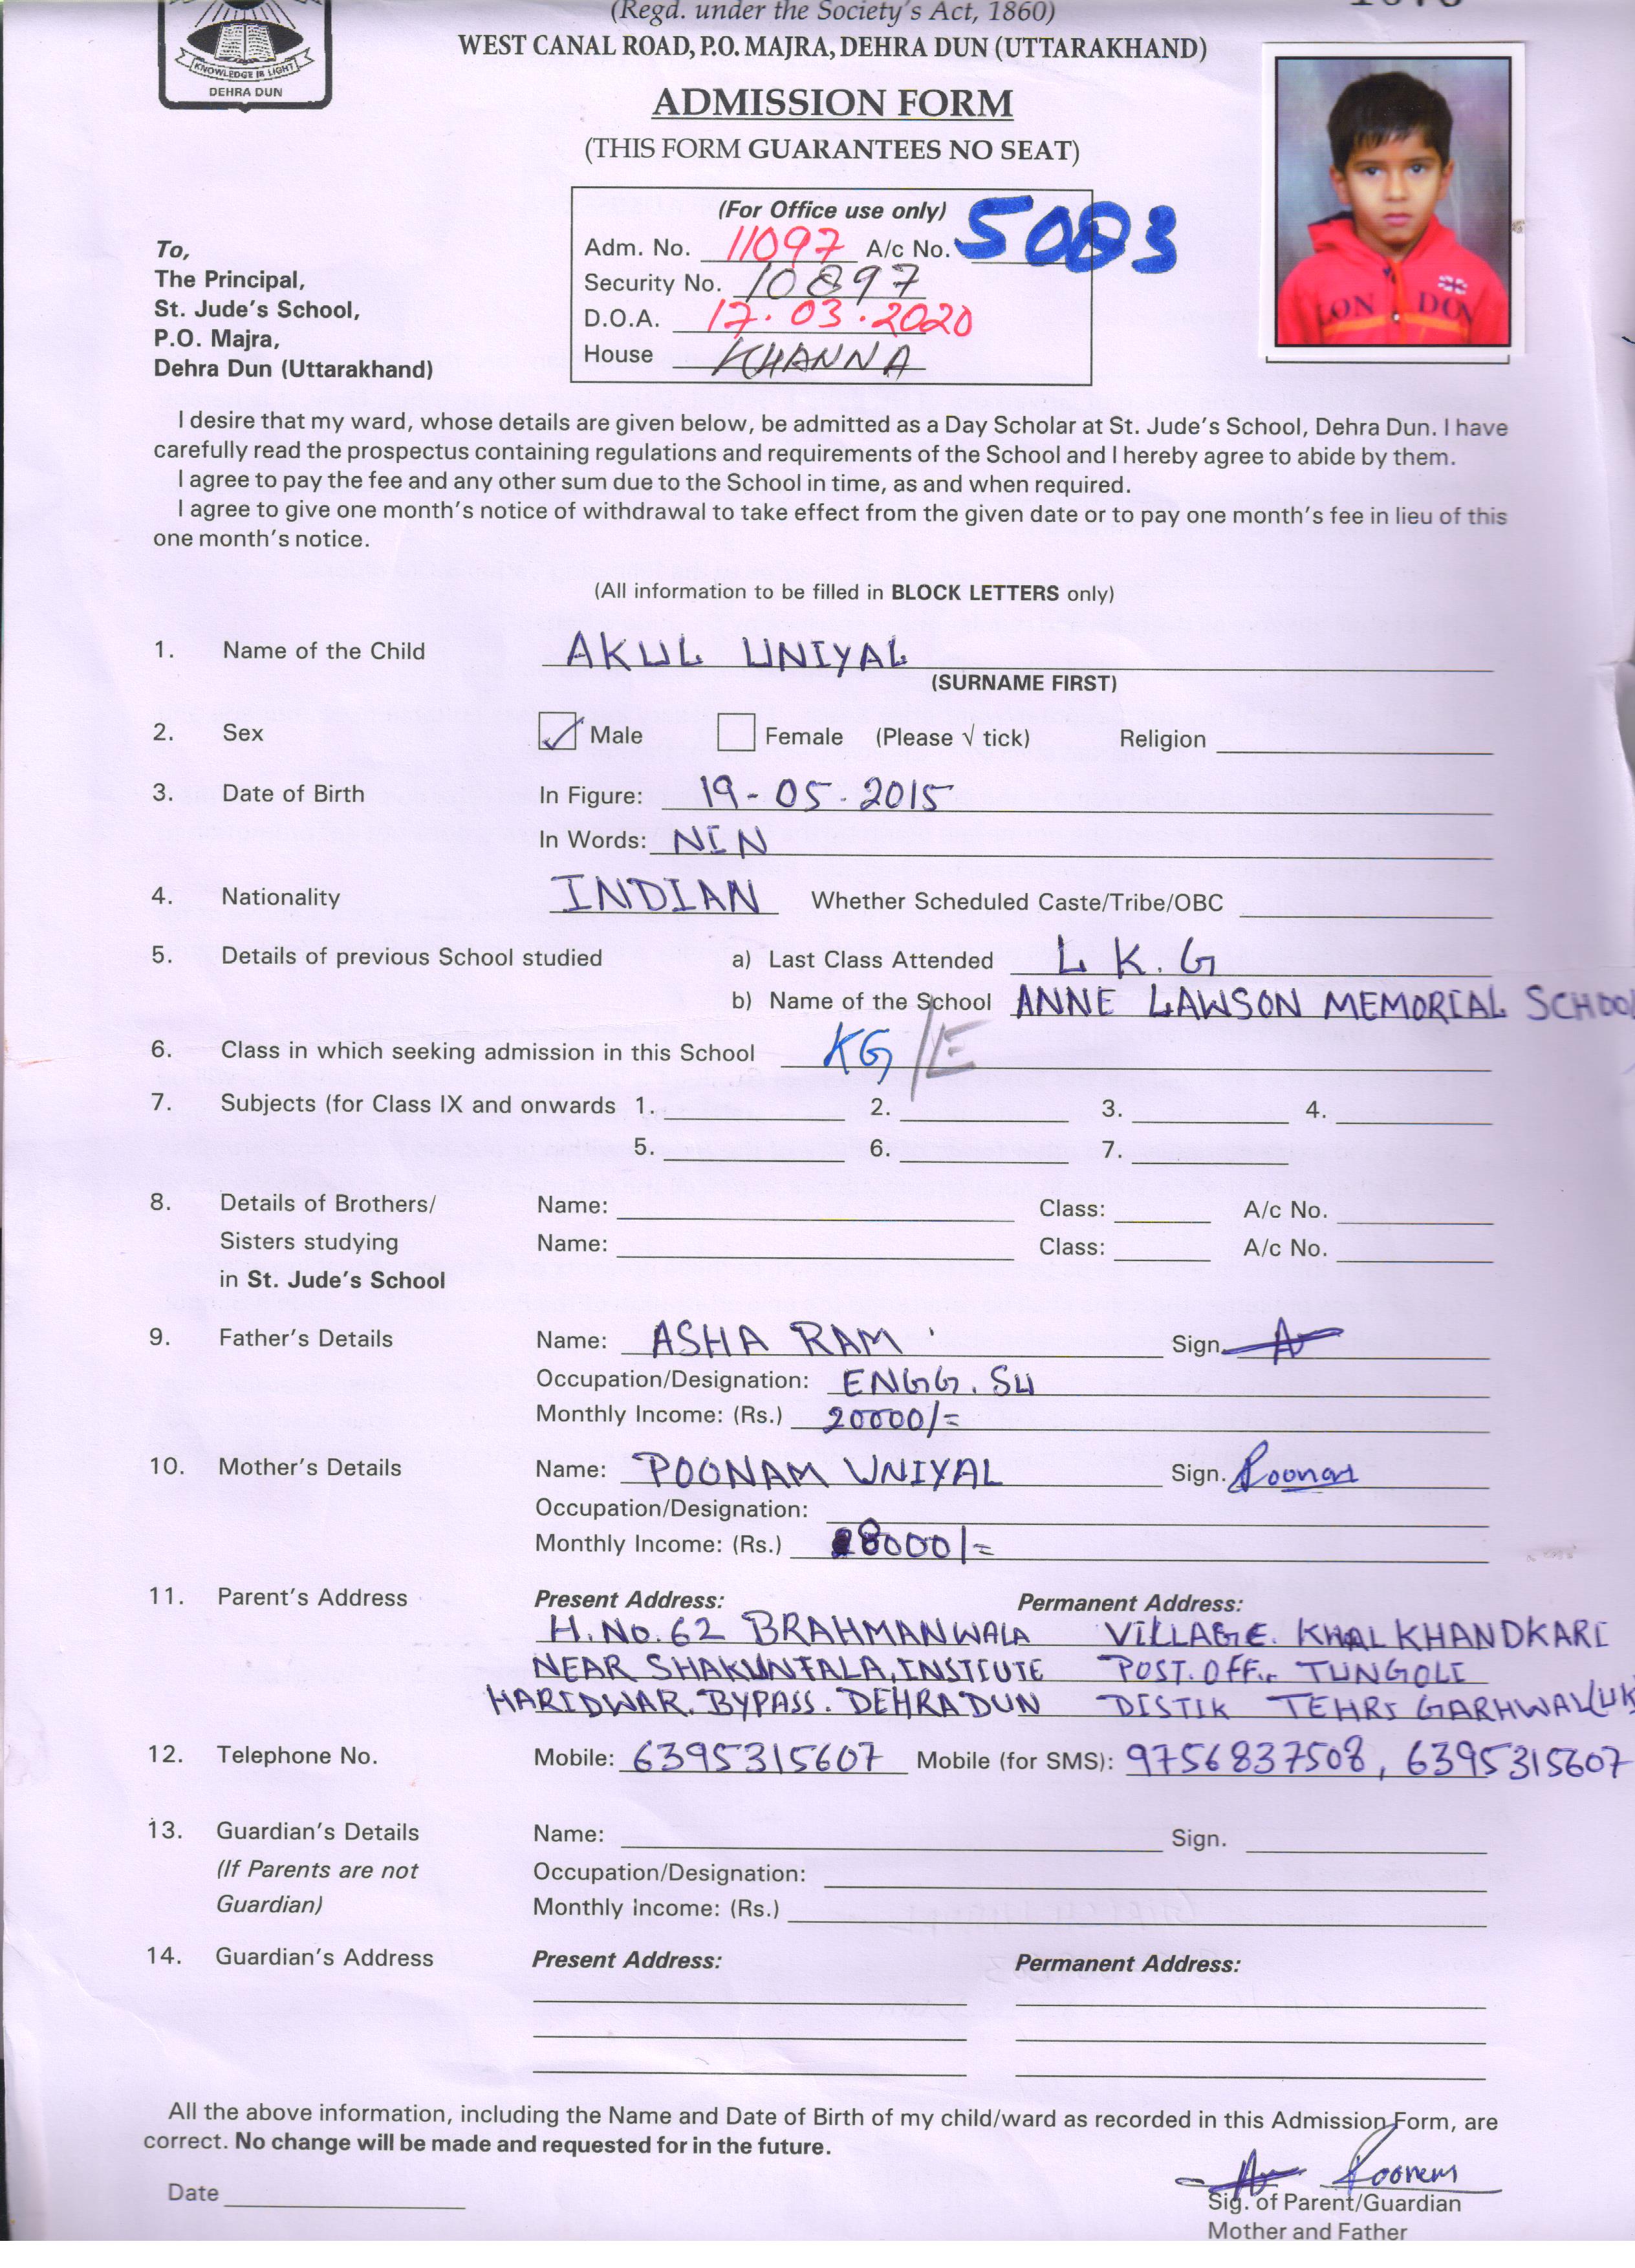 (Regd. under the Society's Act, 1860)
WEST CANAL ROAD, P.O. MAJRA, DEHRA DUN (UTTARAKHAND)
KNOWLEDGE IS LIGHT
DEHRA DUN
ADMISSION FORM
(THIS FORM GUARANTEES NO SEAT)
(For Office use only)
Adm. No. 11097 A/c No. 5083
Security No. 10897
D.O.A. 17.03.2020
House KHANNA
To,
The Principal,
St. Jude's School,
P.O. Majra,
Dehra Dun (Uttarakhand)
LON DON
I desire that my ward, whose details are given below, be admitted as a Day Scholar at St. Jude's School, Dehra Dun. I have
carefully read the prospectus containing regulations and requirements of the School and I hereby agree to abide by them.
I agree to pay the fee and any other sum due to the School in time, as and when required.
I agree to give one month's notice of withdrawal to take effect from the given date or to pay one month's fee in lieu of this
one month's notice.
(All information to be filled in BLOCK LETTERS only)
1. Name of the Child AKUL UNIYAL
(SURNAME FIRST)
2. Sex Male Female (Please √ tick) Religion
3. Date of Birth In Figure: 19-05-2015
In Words: NIN
4. Nationality INDIAN Whether Scheduled Caste/Tribe/OBC
5. Details of previous School studied a) Last Class Attended L K.G
b) Name of the School ANNE LAWSON MEMORIAL SCHOOL
6. Class in which seeking admission in this School KG/E
7. Subjects (for Class IX and onwards 1. 2. 3. 4.
5. 6. 7.
8. Details of Brothers/ Name: Class: A/c No.
Sisters studying Name: Class: A/c No.
in St. Jude's School
9. Father's Details Name: ASHA RAM Sign.
Occupation/Designation: ENGG. SU
Monthly Income: (Rs.) 20000/=
10. Mother's Details Name: POONAM UNIYAL Sign. Poonam
Occupation/Designation:
Monthly Income: (Rs.) 8000/=
11. Parent's Address Present Address: Permanent Address:
H.NO.62 BRAHMANWALA VILLAGE. KHAL KHANDKARI
NEAR SHAKUNTALA, INSTIUTE POST. OFF. TUNGOLI
HARIDWAR. BYPASS. DEHRADUN DISTIK TEHRI GARHWAL (UK
12. Telephone No. Mobile: 6395315607 Mobile (for SMS): 9756837508, 6395315607
13. Guardian's Details Name: Sign.
(If Parents are not Occupation/Designation:
Guardian) Monthly income: (Rs.)
14. Guardian's Address Present Address: Permanent Address:
All the above information, including the Name and Date of Birth of my child/ward as recorded in this Admission Form, are
correct. No change will be made and requested for in the future.
Poonam
Date Sig. of Parent/Guardian
Mother and Father